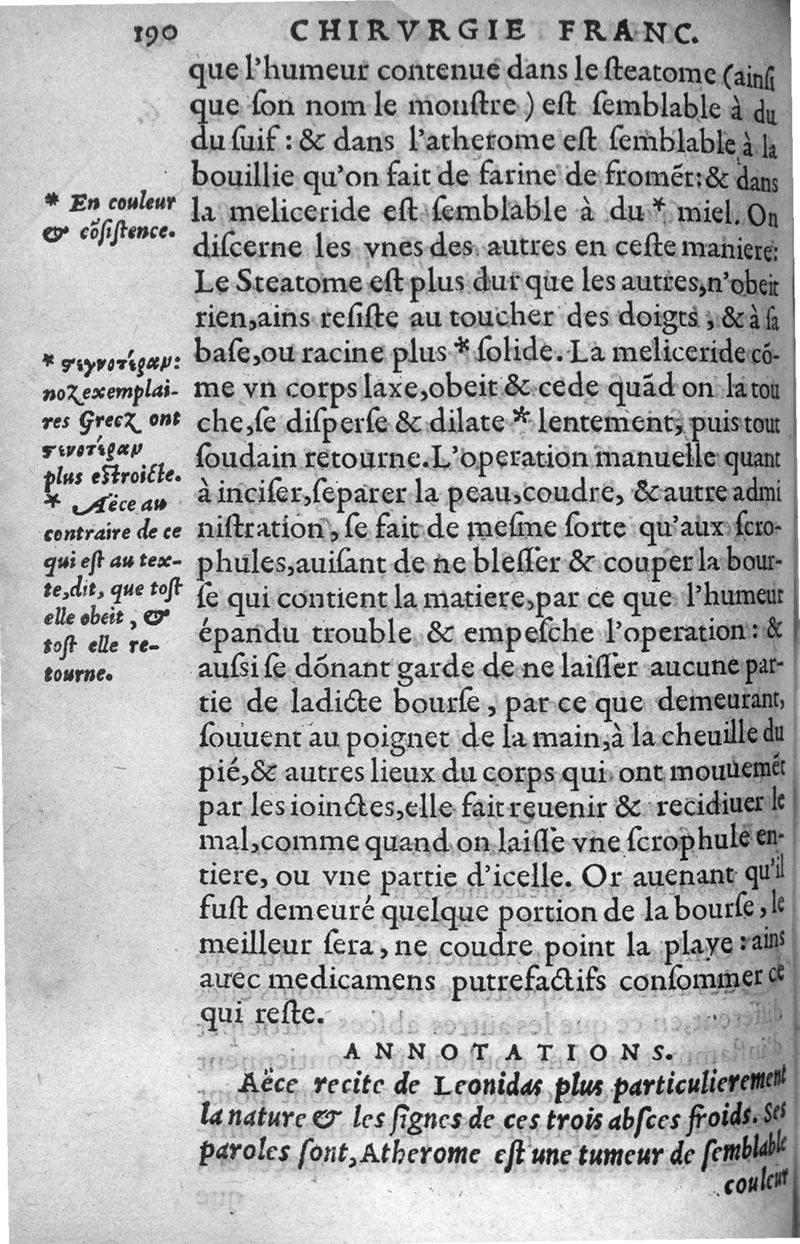 190 CHIRVRGIE FRANC.
que l'humeur contenue dans le ſteatome (ainſi
que ſon nom le monſtre) eſt ſemblable à du
du ſuif : & dans l'atherome eſt ſemblable à la
bouillie qu'on fait de farine de fromẽt: & dans
la meliceride eſt ſemblable à du * miel. On
diſcerne les vnes des autres en ceſte maniere:
Le Steatome eſt plus dur que les autres, n'obeit
rien, ains reſiſte au toucher des doigts, & à ſa
baſe, ou racine plus * ſolide. La meliceride cõ-
me vn corps laxe, obeit & cede quãd on la tou
che, ſe diſperſe & dilate * lentement, puis tout
ſoudain retourne. L'operation manuelle quant
à inciſer, ſeparer la peau, coudre, & autre admi
niſtration, ſe fait de meſme ſorte qu'aux ſcro-
phules, auiſant de ne bleſſer & couper la bour-
ſe qui contient la matiere, par ce que l'humeur
épandu trouble & empeſche l'operation : &
auſsi ſe dõnant garde de ne laiſſer aucune par-
tie de ladicte bourſe, par ce que demeurant,
ſouuent au poignet de la main, à la cheuille du
pié, & autres lieux du corps qui ont mouuemẽt
par les ioinctes, elle fait reuenir & recidiuer le
mal, comme quand on laiſſe vne ſcrophule en-
tiere, ou vne partie d'icelle. Or auenant qu'il
fuſt demeuré quelque portion de la bourſe, le
meilleur ſera, ne coudre point la playe : ains
auec medicamens putrefactifs conſommer ce
qui reſte.
* En couleur
& cõſiſtence.
* στιγνοτέραν:
noz exemplai-
res Grecz ont
στενοτέραν
plus eſtroicte.
* Aëce au
contraire de ce
qui eſt au tex-
te, dit, que toſt
elle obeit, &
toſt elle re-
tourne.
ANNOTATIONS.
Aëce recite de Leonidas plus particulierement
la nature & les ſignes de ces trois abſces froids. Ses
paroles ſont, Atherome eſt une tumeur de ſemblable
couleur